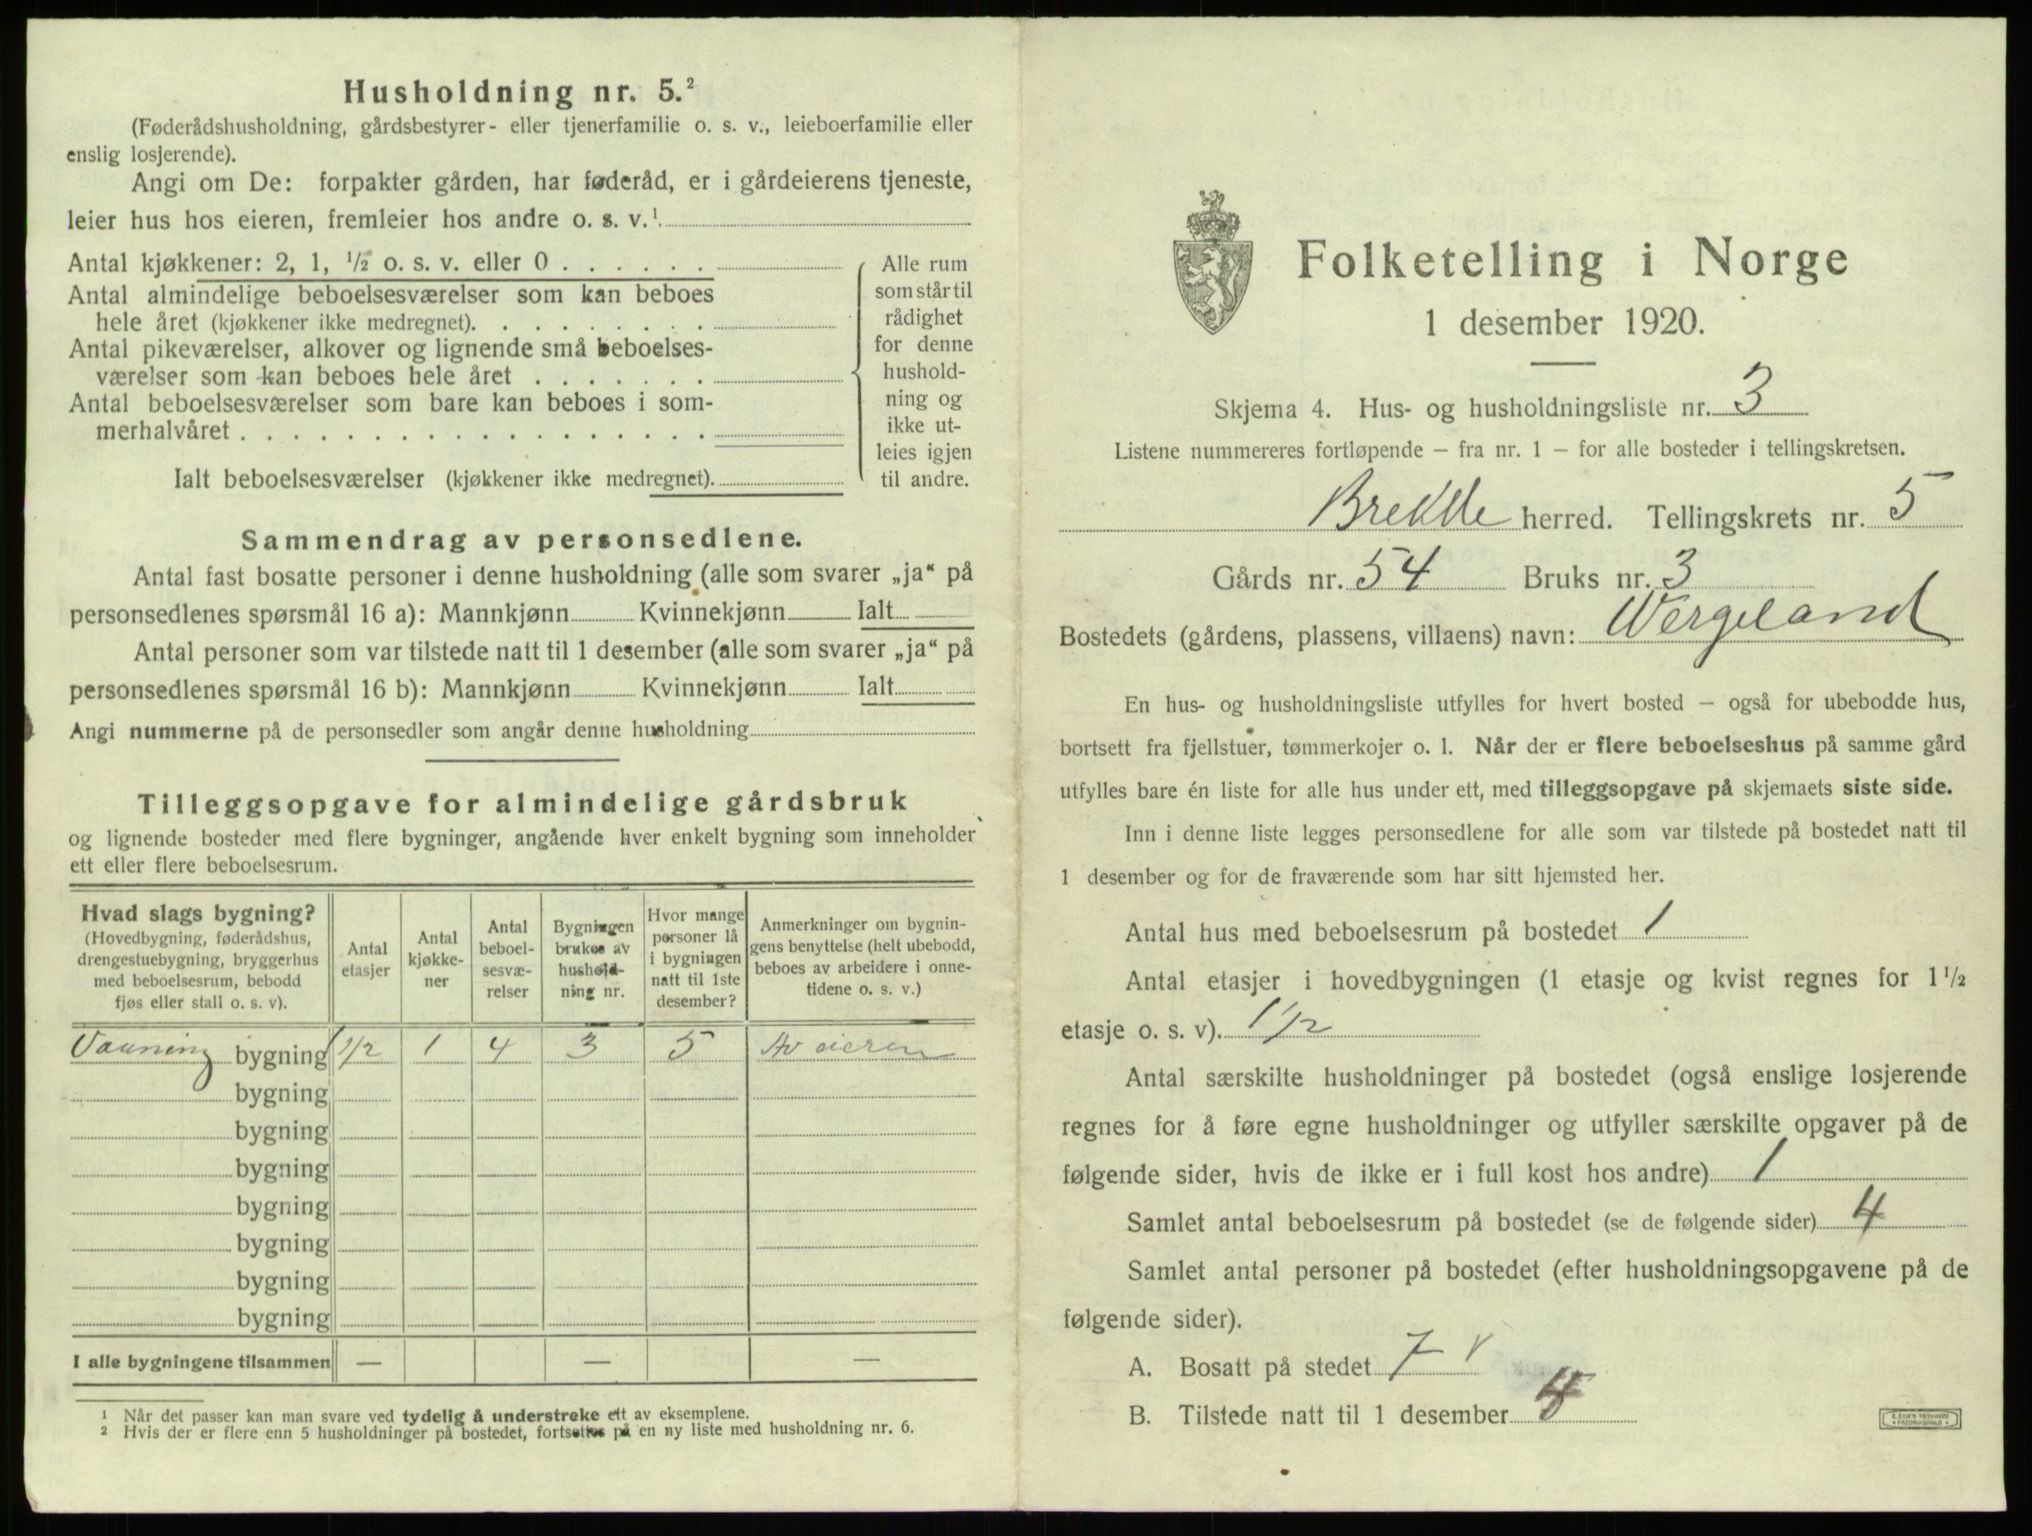 Husholdning nr. 5.²
(Føderådshusholdning, gårdsbestyrer- eller tjenerfamilie o. s. v., leieboerfamilie eller
enslig losjerende).
Angi om De: forpakter gården, har føderåd, er i gårdeierens tjeneste,
leier hus hos eieren, fremleier hos andre o. s. v.¹
Antal kjøkkener: 2, 1, ½ o. s. v. eller 0 . . . . . .
Antal almindelige beboelsesværelser som kan beboes
hele året (kjøkkener ikke medregnet). . . . . . . . .
Antal pikeværelser, alkover og lignende små beboelses-
værelser som kan beboes hele året . . . . . . .
Antal beboelsesværelser som bare kan beboes i som-
merhalvåret . . . . . . . . . . . . . . . . . .
Ialt beboelsesværelser (kjøkkener ikke medregnet).
Alle rum
som står til
rådighet
for denne
hushold-
ning og
ikke ut-
leies igjen
til andre.
Sammendrag av personsedlene.
Antal fast bosatte personer i denne husholdning (alle som svarer „ja“ på
personsedlenes spørsmål 16 a): Mannkjønn Kvinnekjønn Ialt
Antal personer som var tilstede natt til 1 desember (alle som svarer „ja“ på
personsedlenes spørsmål 16 b): Mannkjønn Kvinnekjønn Ialt
Angi nummerne på de personsedler som angår denne husholdning
Tilleggsopgave for almindelige gårdsbruk
og lignende bosteder med flere bygninger, angående hver enkelt bygning som inneholder
ett eller flere beboelsesrum.
Hvad slags bygning?
(Hovedbygning, føderådshus,
drengestuebygning, bryggerhus
med beboelsesrum, bebodd
fjøs eller stall o. s. v).
Antal
etasjer
Antal
kjøkke-
ner
Antal
beboel-
sesvæ-
relser
Bygningen
brukes av
hushold-
ning nr.
Hvor mange
personer lå
i bygningen
natt til 1ste
desember?
Anmerkninger om bygnin-
gens benyttelse (helt ubebodd,
beboes av arbeidere i onne-
tidene o. s. v.)
Vaaning bygning 1½ 1 4 3 5 Av eieren
bygning
bygning
bygning
bygning
bygning
bygning
bygning
I alle bygningene tilsammen — — —
¹ Når det passer kan man svare ved tydelig å understreke ett av eksemplene.
² Hvis der er flere enn 5 husholdninger på bostedet, fortsettes på en ny liste med husholdning nr. 6.
Folketelling i Norge
1 desember 1920.
Skjema 4. Hus- og husholdningsliste nr. 3
Listene nummereres fortløpende — fra nr. 1 — for alle bosteder i tellingskretsen.
Brekke herred. Tellingskrets nr. 5
Gårds nr. 54 Bruks nr. 3
Bostedets (gårdens, plassens, villaens) navn: Wergeland
En hus- og husholdningsliste utfylles for hvert bosted — også for ubebodde hus,
bortsett fra fjellstuer, tømmerkojer o. l. Når der er flere beboelseshus på samme gård
utfylles bare én liste for alle hus under ett, med tilleggsopgave på skjemaets siste side.
Inn i denne liste legges personsedlene for alle som var tilstede på bostedet natt til
1 desember og for de fraværende som har sitt hjemsted her.
Antal hus med beboelsesrum på bostedet 1
Antal etasjer i hovedbygningen (1 etasje og kvist regnes for 1½
etasje o. s. v). 1½
Antal særskilte husholdninger på bostedet (også enslige losjerende
regnes for å føre egne husholdninger og utfyller særskilte opgaver på de
følgende sider, hvis de ikke er i full kost hos andre) 1
Samlet antal beboelsesrum på bostedet (se de følgende sider) 4
Samlet antal personer på bostedet (efter husholdningsopgavene på de
følgende sider).
A. Bosatt på stedet 7 v
B. Tilstede natt til 1 desember